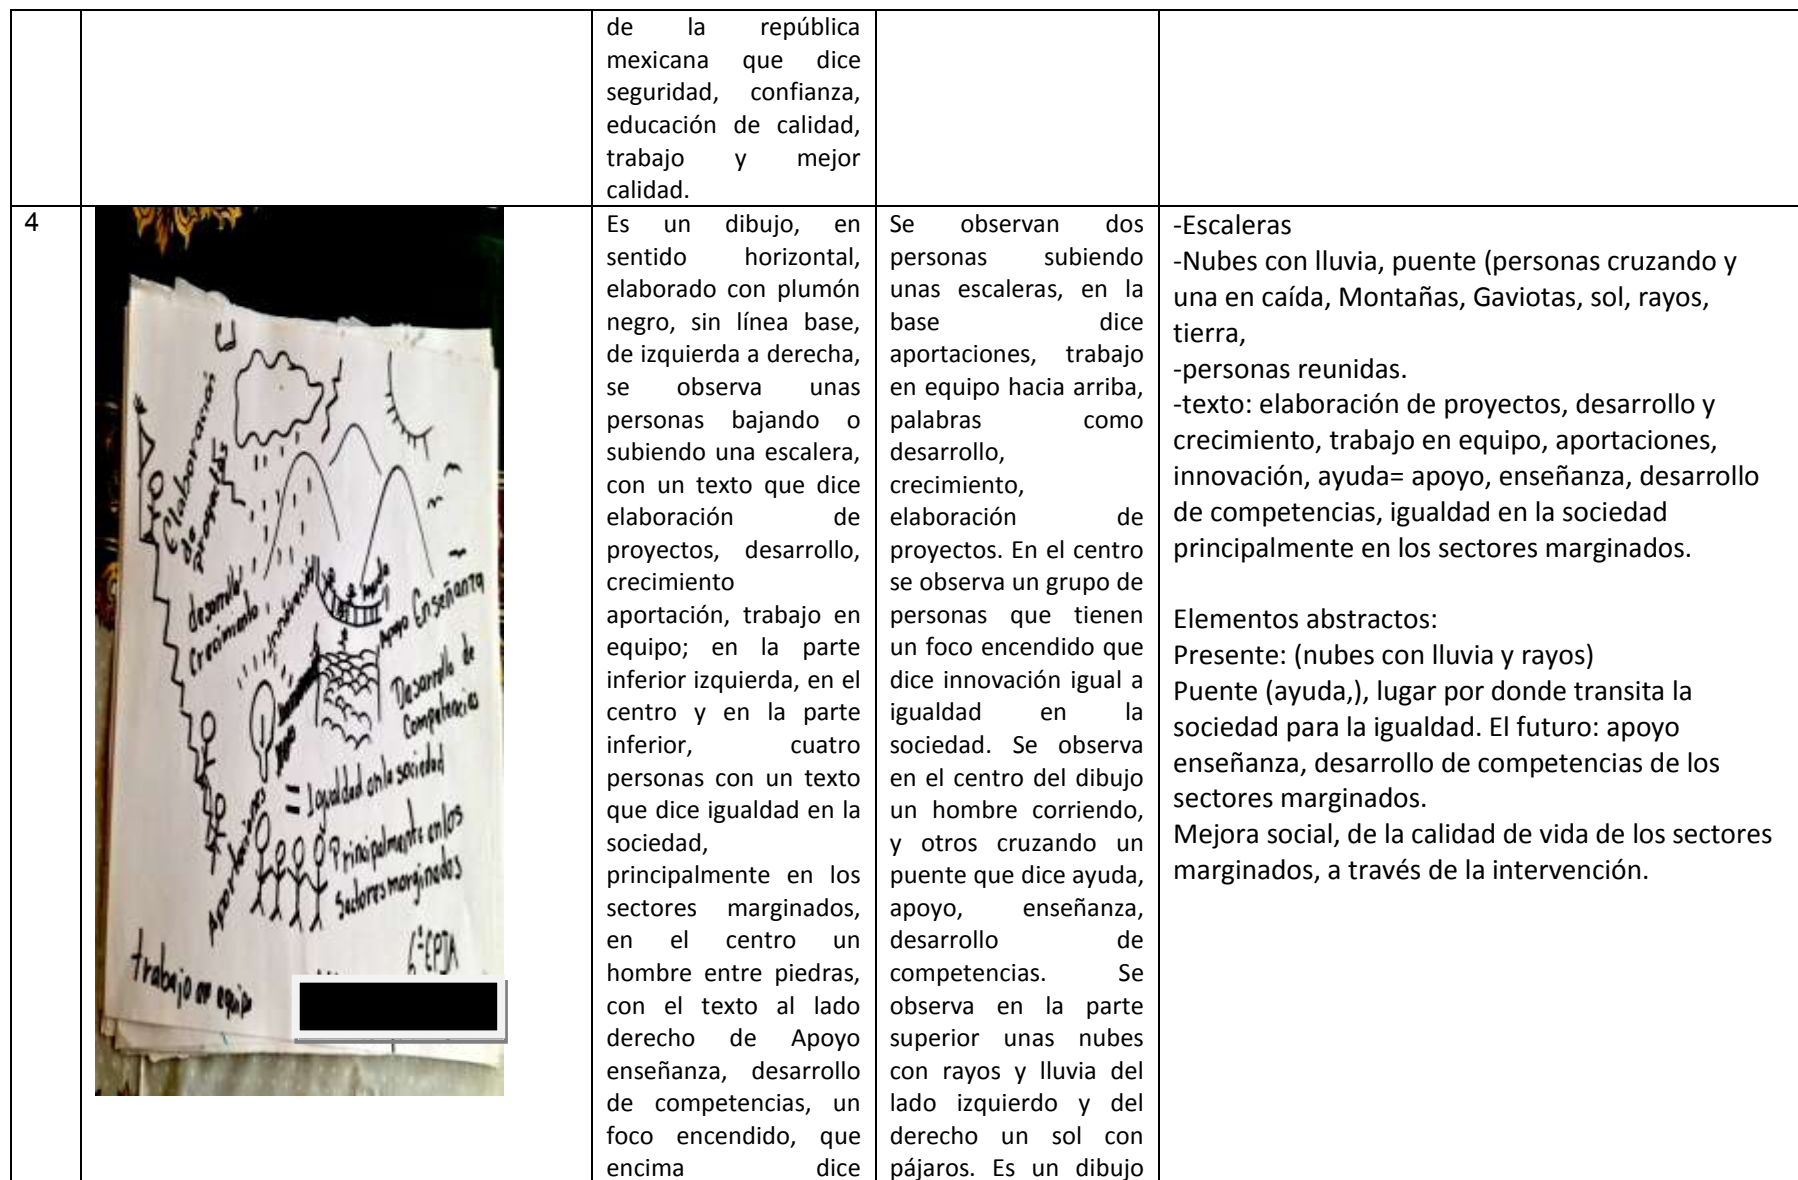 de la república
mexicana que dice
seguridad, confianza,
educación de calidad,
trabajo y mejor
calidad.
4
Elaboracion
de proyectos
desarrollo
Crecimiento
innovación
Ayuda
Apoyo Enseñanza
Desarrollo de
Competencias
= Igualdad en la sociedad
Principalmente en los
Sectores marginados
Aportaciones
trabajo en equipo
6° EPJA
Es un dibujo, en
sentido horizontal,
elaborado con plumón
negro, sin línea base,
de izquierda a derecha,
se observa unas
personas bajando o
subiendo una escalera,
con un texto que dice
elaboración de
proyectos, desarrollo,
crecimiento
aportación, trabajo en
equipo; en la parte
inferior izquierda, en el
centro y en la parte
inferior, cuatro
personas con un texto
que dice igualdad en la
sociedad,
principalmente en los
sectores marginados,
en el centro un
hombre entre piedras,
con el texto al lado
derecho de Apoyo
enseñanza, desarrollo
de competencias, un
foco encendido, que
encima dice
Se observan dos
personas subiendo
unas escaleras, en la
base dice
aportaciones, trabajo
en equipo hacia arriba,
palabras como
desarrollo,
crecimiento,
elaboración de
proyectos. En el centro
se observa un grupo de
personas que tienen
un foco encendido que
dice innovación igual a
igualdad en la
sociedad. Se observa
en el centro del dibujo
un hombre corriendo,
y otros cruzando un
puente que dice ayuda,
apoyo, enseñanza,
desarrollo de
competencias. Se
observa en la parte
superior unas nubes
con rayos y lluvia del
lado izquierdo y del
derecho un sol con
pájaros. Es un dibujo
-Escaleras
-Nubes con lluvia, puente (personas cruzando y
una en caída, Montañas, Gaviotas, sol, rayos,
tierra,
-personas reunidas.
-texto: elaboración de proyectos, desarrollo y
crecimiento, trabajo en equipo, aportaciones,
innovación, ayuda= apoyo, enseñanza, desarrollo
de competencias, igualdad en la sociedad
principalmente en los sectores marginados.
Elementos abstractos:
Presente: (nubes con lluvia y rayos)
Puente (ayuda,), lugar por donde transita la
sociedad para la igualdad. El futuro: apoyo
enseñanza, desarrollo de competencias de los
sectores marginados.
Mejora social, de la calidad de vida de los sectores
marginados, a través de la intervención.